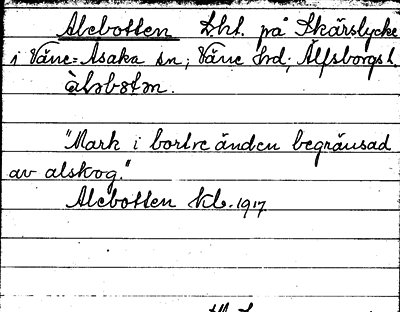 Alebotten Lht. på Skärslycke
i Väne-Åsaka sn; Väne hd; Älfsborgs l.
àləbòtn.
"Mark i bortre änden begränsad
av alskog."
Alebotten kb. 1917